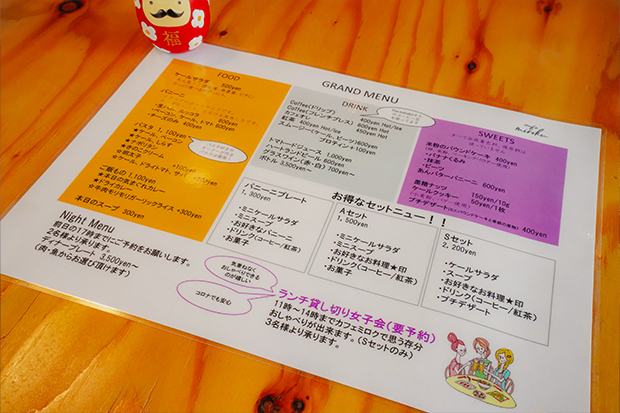 福
GRAND MENU
FOOD
ケールサラダ 500yen
パニーニ
・生ハム、ルッコラ
・ベーコン、ケール、トマト 600yen
・チーズのみ 400yen
パスタ 1,100yen〜
★ケール、ベーコン
★ケール、しらす
★ナポリタン
☆きのこ +100yen
☆明太子
☆ケール、ドライトマト、サ
ご飯もの 1,100yen
★本日の気まぐれカレー
★ドライカレー
☆牛肉モリモリガーリックライス +300yen
本日のスープ 300yen
DRINK
Coffee(ドリップ) 400yen Hot/Ice
Coffee(フレンチプレス) 600yen Hot
カフェオレ 450yen Hot
紅茶 400yen Hot/Ice
スムージー(ケール、ビーツ) 600yen
プロティイン +100yen
トマトードジュース 1,000yen
ハートランドビール 600yen
グラスワイン(赤・白) 700yen〜
ボトル 3,500yen〜
SWEETS
米粉のパウンドケーキ 400yen
・バナナくるみ
・抹茶
・ビーツ
あんバターパニーニ 600yen
黒糖ナッツ 150yen/10g
ケールクッキー 50yen/1枚
プチデザート 400yen
お得なセットニュー!!
パニーニプレート
1,300yen
・ミニケールサラダ
・ミニスープ
・お好きなパニーニ
・ドリンク(コーヒー/紅茶)
・お菓子
Aセット
1,500yen
・ミニケールサラダ
・ミニスープ
・お好きなお料理★印
・ドリンク(コーヒー/紅茶)
・お菓子
Sセット
2,200yen
・ケールサラダ
・スープ
・お好きなお料理★印
・ドリンク(コーヒー/紅茶)
・プチデザート
Night Menu
前日の17時までにご予約をお願いします。
2名様より承ります。
ディナープレート 3,500yen〜
(肉・魚からお選び頂けます)
気兼ねなく
おしゃべりできる
のが嬉しい
コロナでも安心
ランチ貸し切り女子会(要予約)
11時〜14時までカフェミロクで思う存分
おしゃべりが出来ます。(Sセットのみ)
3名様より承ります。